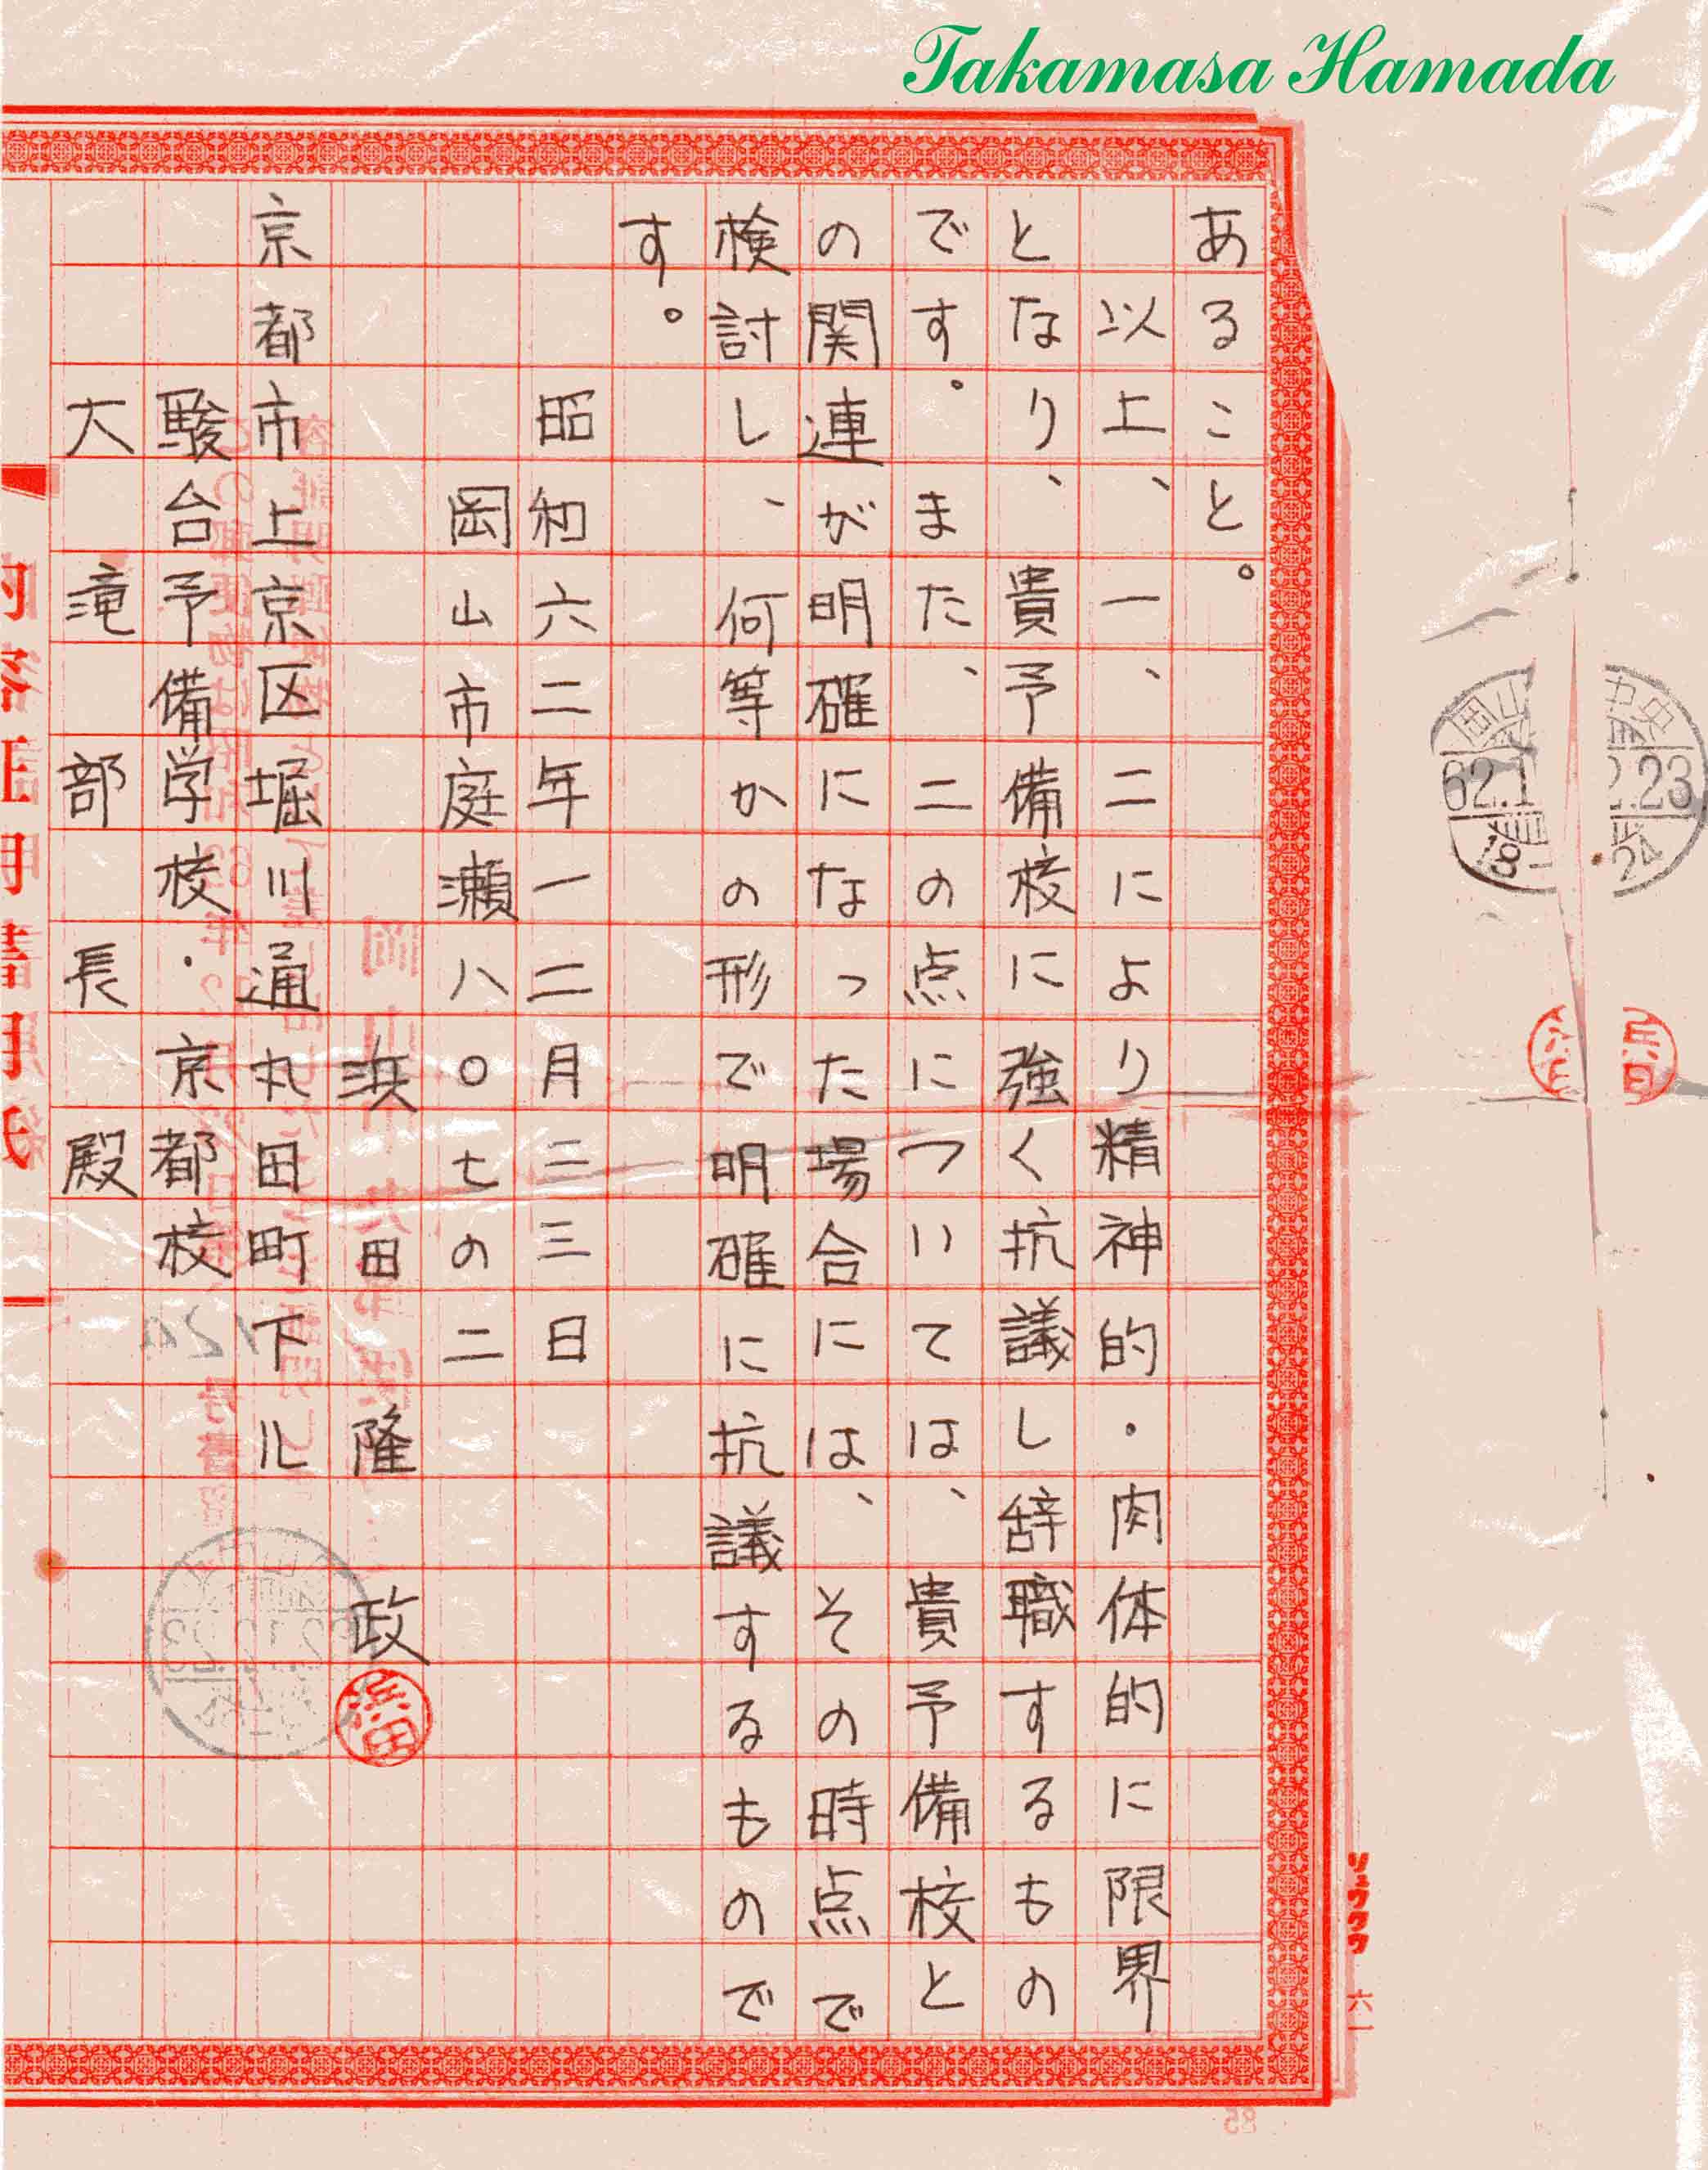 Takamasa Hamada
あること。
以上、一、二により精神的・肉体的に限界
となり、貴予備校に強く抗議し辞職するもの
です。また、二の点については、貴予備校と
の関連が明確になった場合には、その時点で
検討し、何等かの形で明確に抗議するもので
す。
昭和六二年一二月二三日
岡山市庭瀬八〇七の二
浜田隆政
浜田
京都市上京区堀川通丸田町下ル
駿台予備学校・京都校
大滝部長殿
リュウクワ 六一
岡山中央
浜田